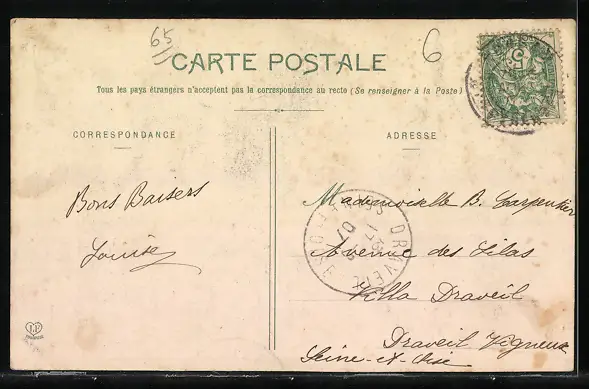 65
6
CARTE POSTALE
Tous les pays étrangers n'acceptent pas la correspondance au recto (Se renseigner à la Poste)
CORRESPONDANCE
ADRESSE
Bons Baisers
Louise
Mademoiselle B. Carpentier
Avenue des Lilas
Villa Draveil
Draveil Vigneux
Seine-et-Oise
DRAVEIL
SEINE-ET-OISE
07
5